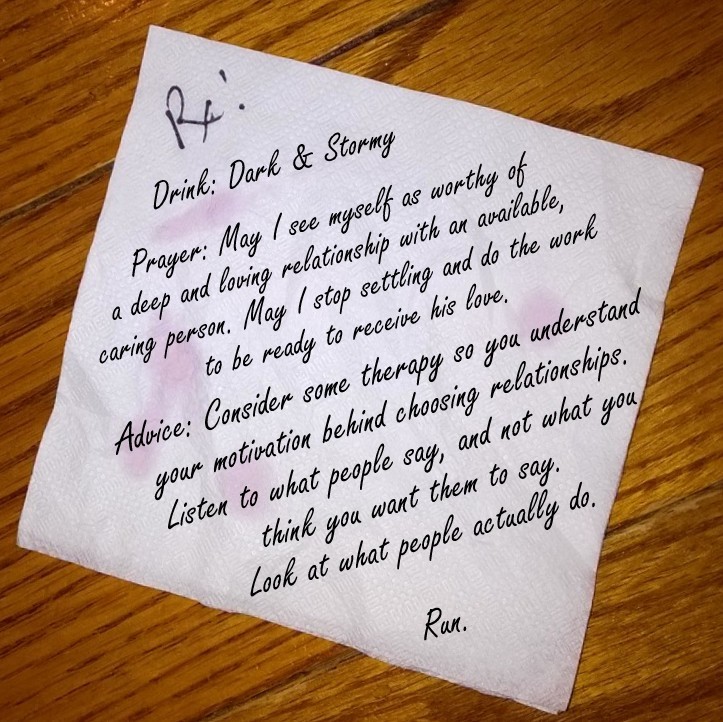 Rx:
Drink: Dark & Stormy
Prayer: May I see myself as worthy of
a deep and loving relationship with an available,
caring person. May I stop settling and do the work
to be ready to receive his love.
Advice: Consider some therapy so you understand
your motivation behind choosing relationships.
Listen to what people say, and not what you
think you want them to say.
Look at what people actually do.
Run.